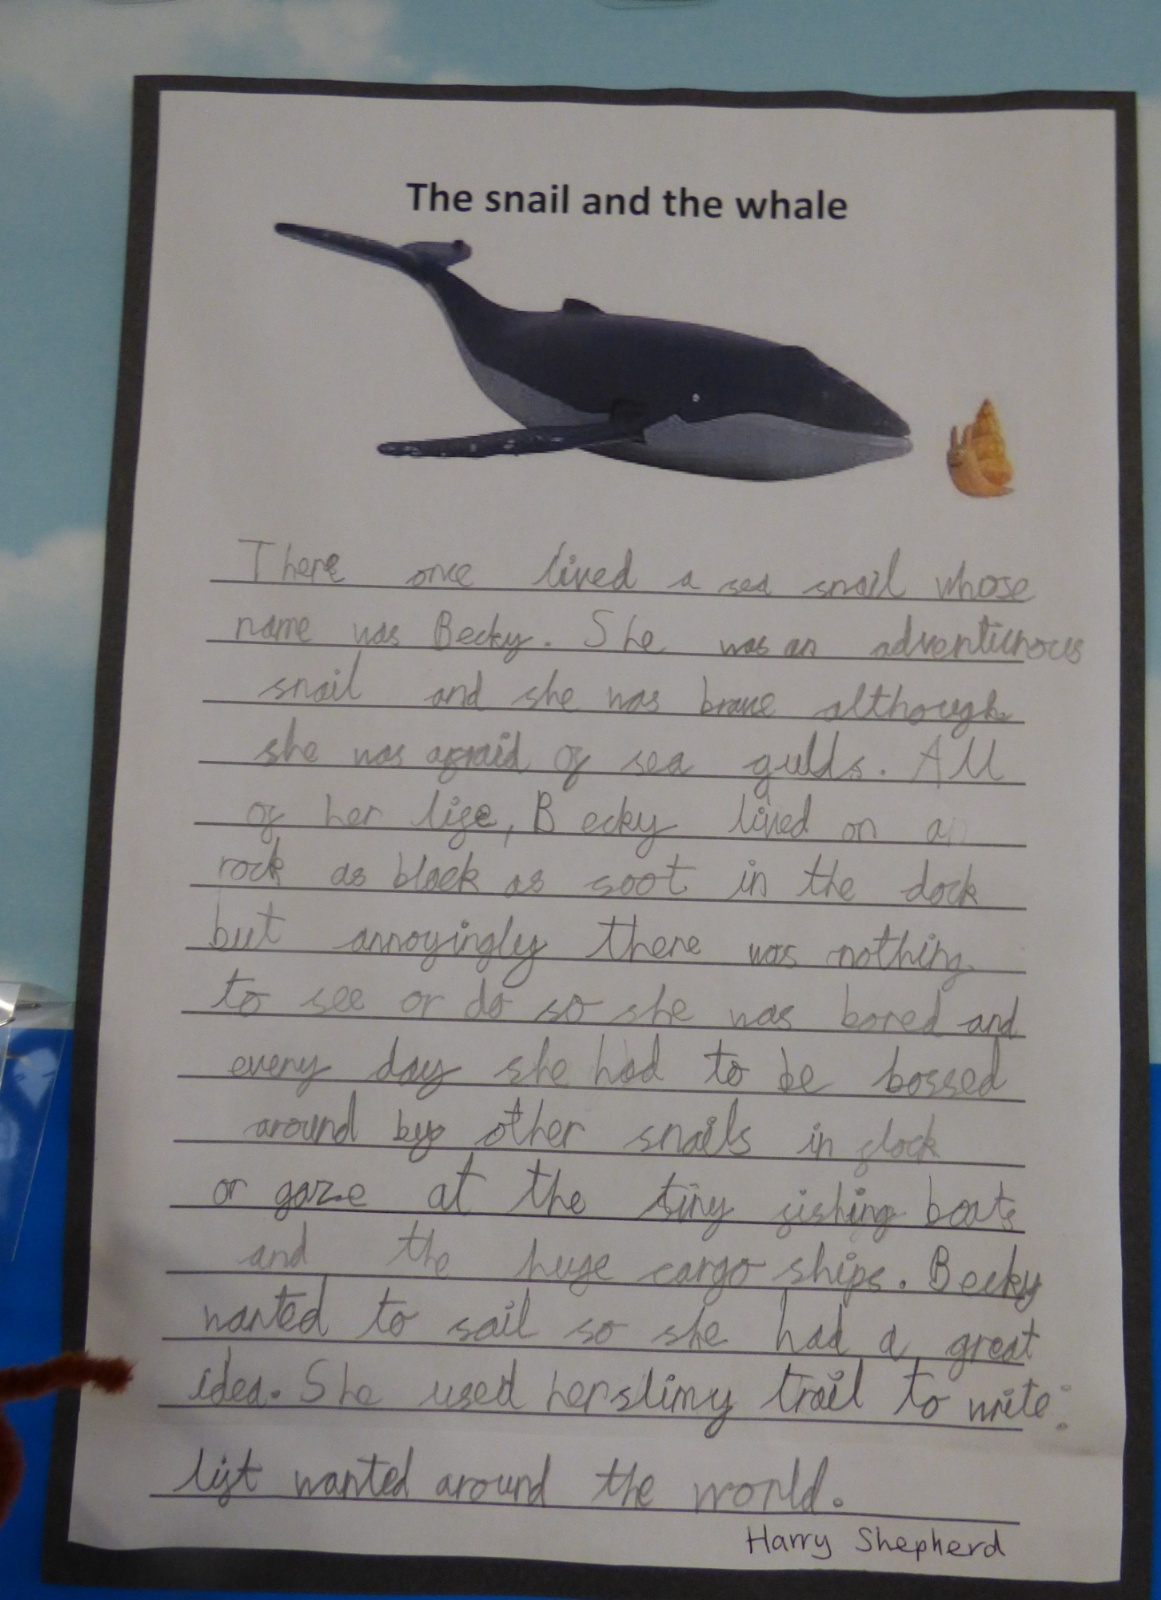 The snail and the whale
There once lived a sea snail whose
name was Becky. She was an adventichous
snail and she was brave although
she was afraid of sea gulls. All
of her life, Becky lived on a
rock as black as soot in the dock
but annoyingly there was nothing
to see or do so she was bored and
every day she had to be bossed
around by other snails in flock
or gaze at the tiny fishing boats
and the huge cargo ships. Becky
wanted to sail so she had a great
idea. She used her slimy trail to write:
lift wanted around the world.
Harry Shepherd